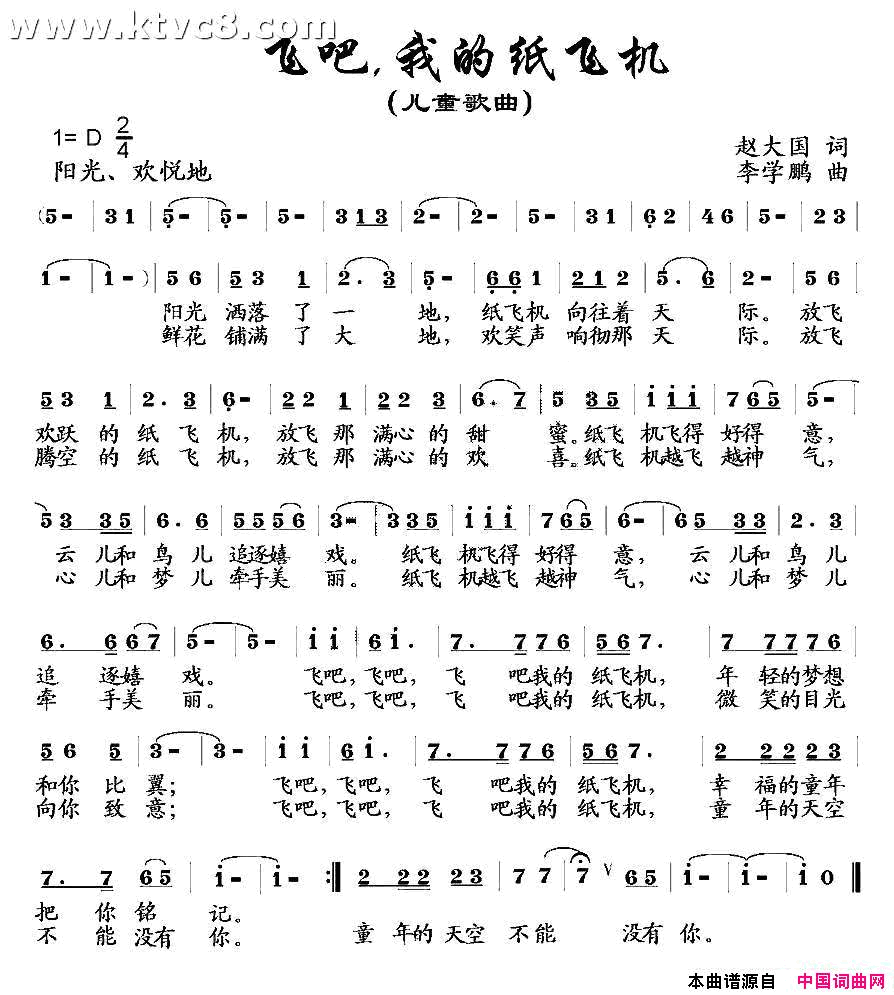 www.ktvc8.com
飞吧,我的纸飞机
(儿童歌曲)
1= D 2/4
赵大国 词
阳光、欢悦地
李学鹏 曲
(5- | 31 | 5- | 5- | 5- | 313 | 2- | 2- | 5- | 31 | 62 | 46 | 5- | 23
1- | 1- ) | 56 | 53 1 | 2. 3 | 5- | 661 | 212 | 5. 6 | 2- | 56
阳光 洒落 了 一 地, 纸飞机 向往着 天 际。 放飞
鲜花 铺满 了 大 地, 欢笑声 响彻那 天 际。 放飞
53 1 | 2. 3 | 6- | 22 1 | 22 3 | 6. 7 | 5 35 | iii | 765 | 5-
欢跃 的 纸 飞 机, 放飞 那 满心 的 甜 蜜。纸飞 机飞得 好得 意,
腾空 的 纸 飞 机, 放飞 那 满心 的 欢 喜。纸飞 机越飞 越神 气,
53 35 | 6. 6 | 5556 | 3- | 335 | iii | 765 | 6- | 65 33 | 2. 3
云 儿和 鸟 儿 追逐嬉 戏。 纸飞 机飞得 好得 意, 云 儿和 鸟儿
心 儿和 梦 儿 牵手美 丽。 纸飞 机越飞 越神 气, 心 儿和 梦儿
6. 667 | 5- | 5- | ii | 6i. | 7. 776 | 567. | 7 7776
追 逐嬉 戏。 飞吧,飞吧, 飞 吧我的 纸飞机, 年 轻的梦想
牵 手美 丽。 飞吧,飞吧, 飞 吧我的 纸飞机, 微 笑的目光
56 5 | 3- | 3- | ii | 6i. | 7. 776 | 567. | 2 2223
和你 比 翼; 飞吧,飞吧, 飞 吧我的 纸飞机, 幸 福的童年
向你 致 意; 飞吧,飞吧, 飞 吧我的 纸飞机, 童 年的天空
7. 7 | 65 | i- | i- :‖ 2 22 23 | 77 | 7 ∨ | 65 | i- | i- | i0 ‖
把 你 铭 记。
不 能 没有 你。 童 年的 天空 不能 没有 你。
本曲谱源自 中国词曲网